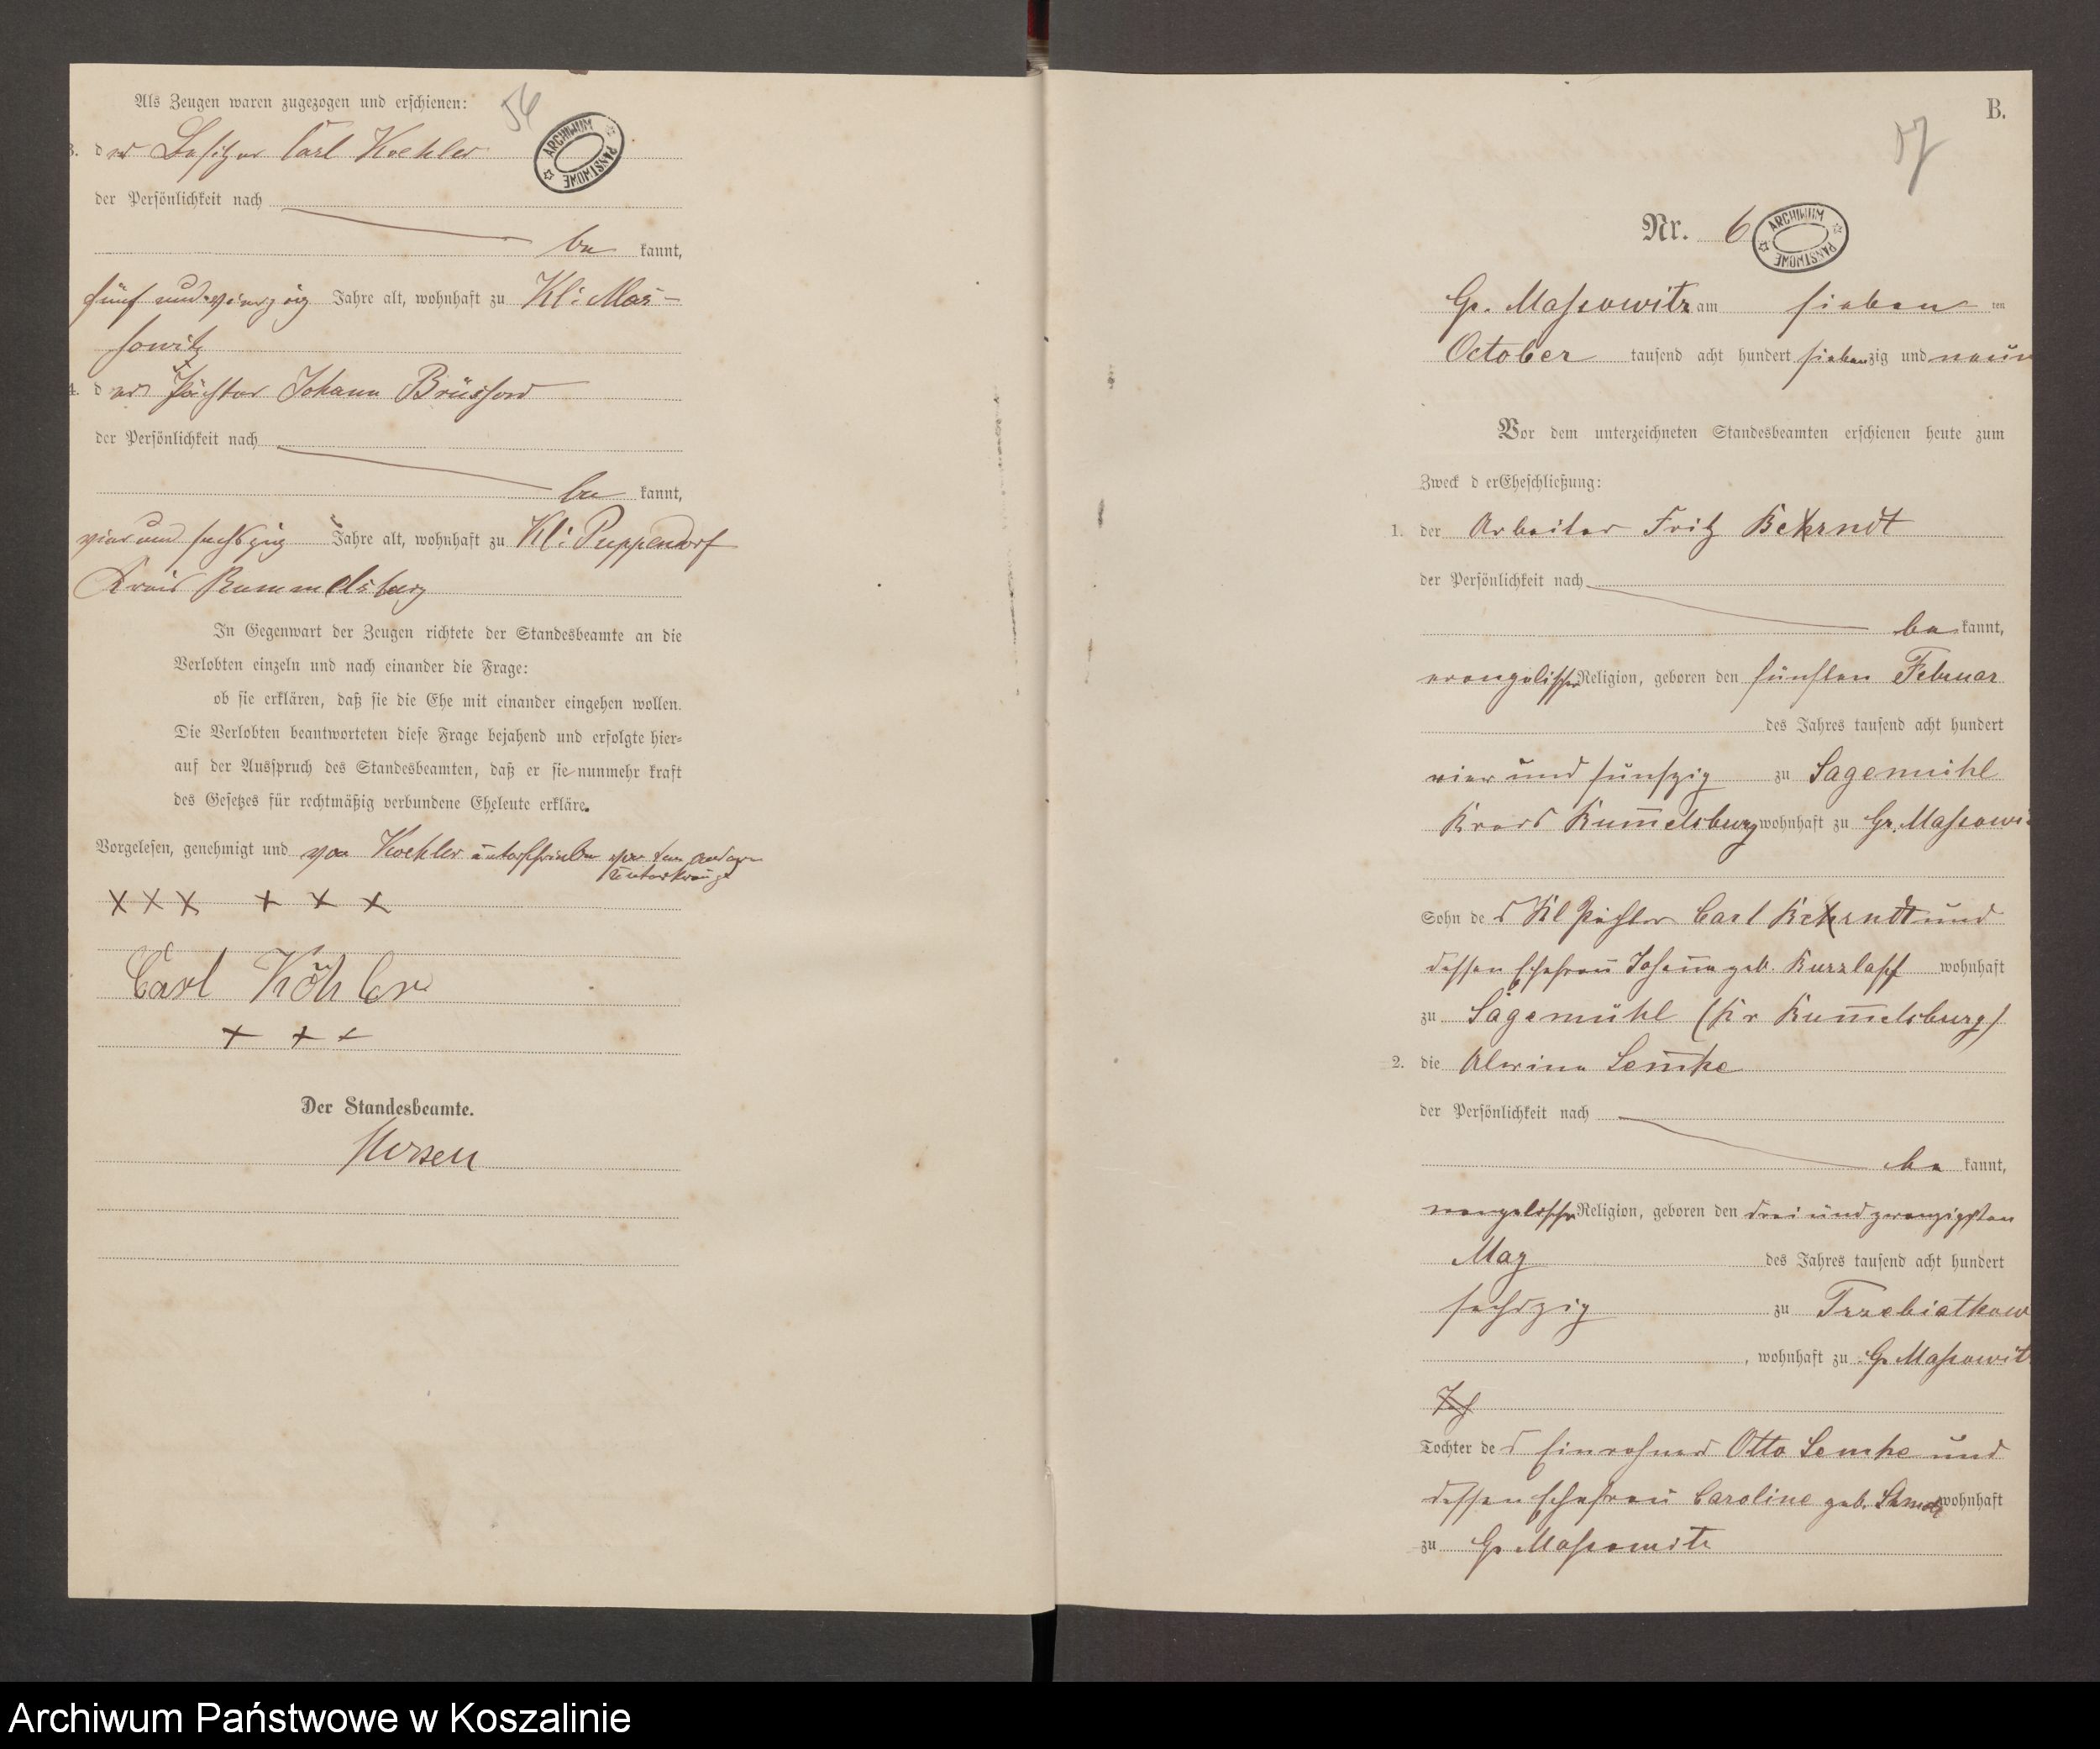 Als Zeugen waren zugezogen und erschienen:
56
ARCHIWUM PAŃSTWOWE
3. der Besitzer Carl Koehler
der Persönlichkeit nach
be kannt,
fünf und vierzig Jahre alt, wohnhaft zu Kl: Mas-
sowitz
4. der Pächter Johann Brüsford
der Persönlichkeit nach
be kannt,
vier und sechszig Jahre alt, wohnhaft zu Kl: Puppendorf
Kreis Rummelsburg
In Gegenwart der Zeugen richtete der Standesbeamte an die
Verlobten einzeln und nach einander die Frage:
ob sie erklären, daß sie die Ehe mit einander eingehen wollen.
Die Verlobten beantworteten diese Frage bejahend und erfolgte hier-
auf der Ausspruch des Standesbeamten, daß er sie nunmehr kraft
des Gesetzes für rechtmäßig verbundene Eheleute erkläre.
Vorgelesen, genehmigt und von Koehler unterschrieben von den andern
unterkreuzt
XXX + + +
Carl Köhler
+ + +
Der Standesbeamte.
B.
57
Nr. 6
ARCHIWUM PAŃSTWOWE
Gr. Massowitz am sieben ten
October tausend acht hundert siebenzig und neun
Vor dem unterzeichneten Standesbeamten erschienen heute zum
Zweck d er Eheschließung:
1. der Arbeiter Fritz Behrndt
der Persönlichkeit nach
be kannt,
evangelischer Religion, geboren den fünften Februar
des Jahres tausend acht hundert
vier und fünfzig zu Sagemühl
Kreis Rummelsburg wohnhaft zu Gr. Massowi
Sohn de s Kl Pächter Carl Behrndt und
dessen Ehefrau Johanna geb. Kurzlaff wohnhaft
zu Sagemühl (Kr Rummelsburg)
2. die Alwine Lemke
der Persönlichkeit nach
be kannt,
evangelischer Religion, geboren den drei und zwanzigsten
May
des Jahres tausend acht hundert
sechszig zu Trzebiatkow
, wohnhaft zu Gr Massowit
Tochter de s Einwohners Otto Lemke und
dessen Ehefrau Caroline geb. wohnhaft
zu Gr Massowitz
Archiwum Państwowe w Koszalinie